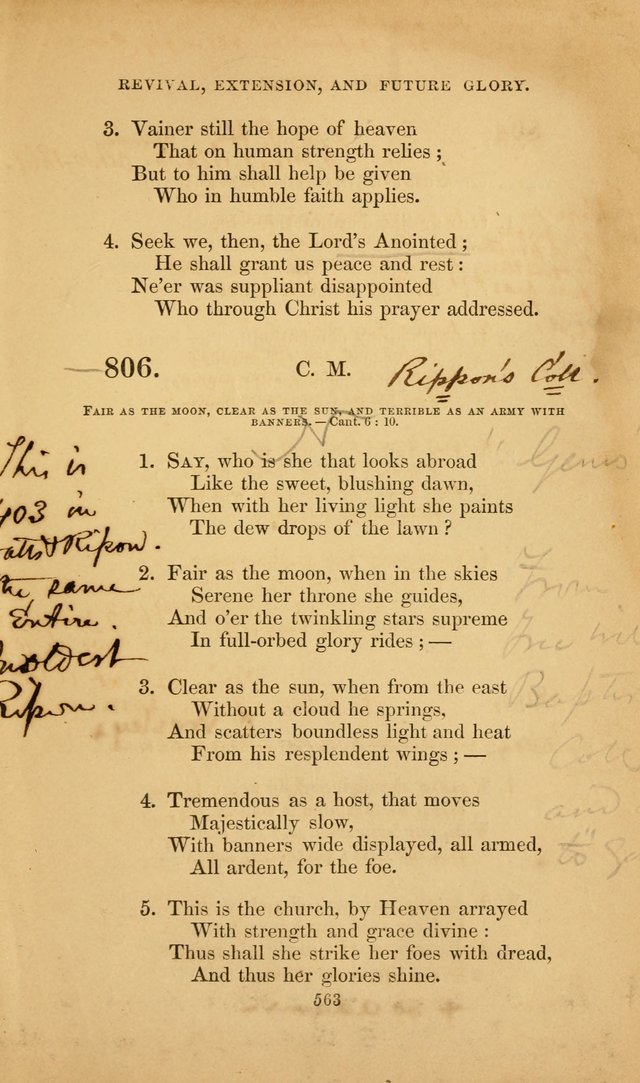 REVIVAL, EXTENSION, AND FUTURE GLORY.
3. Vainer still the hope of heaven
That on human strength relies;
But to him shall help be given
Who in humble faith applies.
4. Seek we, then, the Lord's Anointed;
He shall grant us peace and rest:
Ne'er was suppliant disappointed
Who through Christ his prayer addressed.
806. C. M. Rippon's Coll.
FAIR AS THE MOON, CLEAR AS THE SUN, AND TERRIBLE AS AN ARMY WITH
BANNERS. — Cant. 6 : 10.
1. SAY, who is she that looks abroad
Like the sweet, blushing dawn,
When with her living light she paints
The dew drops of the lawn?
2. Fair as the moon, when in the skies
Serene her throne she guides,
And o'er the twinkling stars supreme
In full-orbed glory rides; —
3. Clear as the sun, when from the east
Without a cloud he springs,
And scatters boundless light and heat
From his resplendent wings; —
4. Tremendous as a host, that moves
Majestically slow,
With banners wide displayed, all armed,
All ardent, for the foe.
5. This is the church, by Heaven arrayed
With strength and grace divine:
Thus shall she strike her foes with dread,
And thus her glories shine.
563
This is
403 in
atts & Ripon.
the same
Entire.
oldest
Ripon.
"Gems"
From
Baptis
Coll
and
to